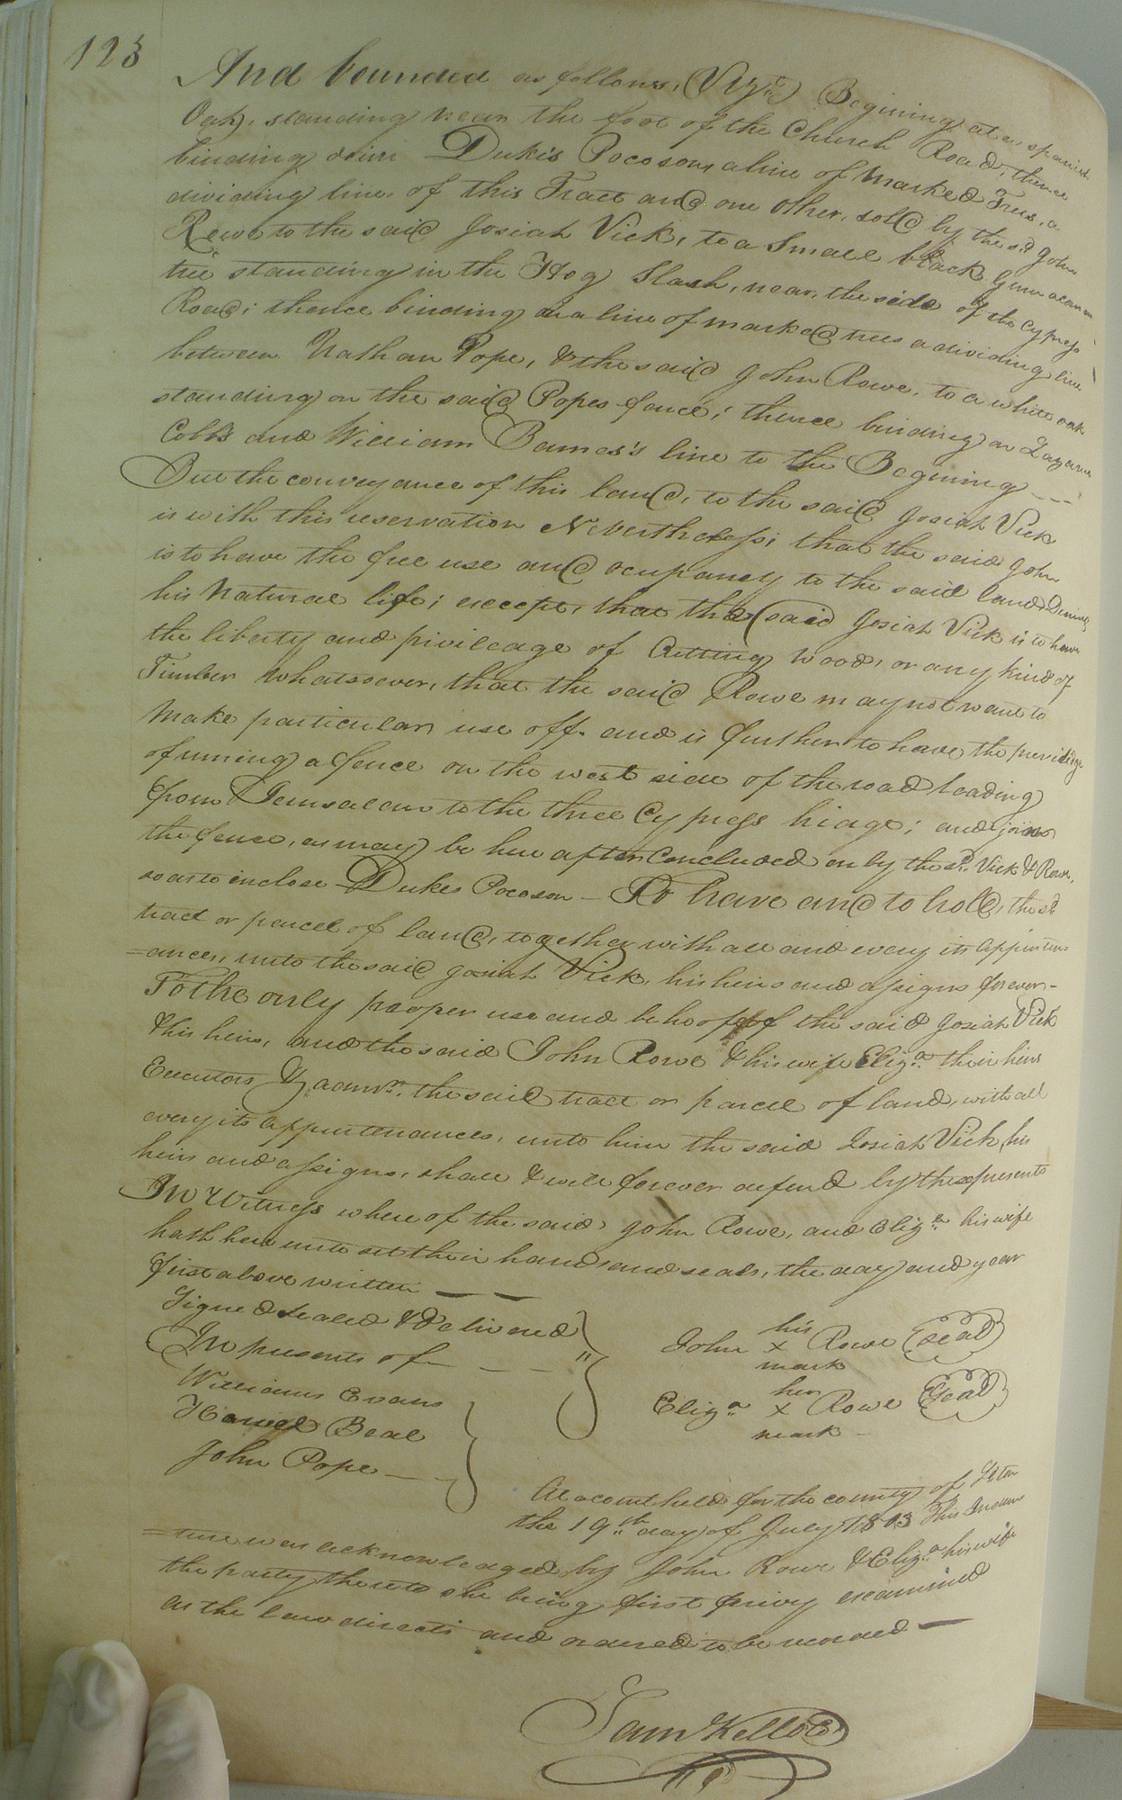 123
And bounded as follows, (Viz.t) Begining at a spanish
Oak, standing near the foot of the Church Road, thence
binding down Duke's Pocoson, a line of marked Trees, a
dividing line of this Tract and one other, sold by the sd. John
Rowe to the said Josiah Vick, to a Small black Gum
tree standing in the Hog Slash, near, the side of the Cypress
Road; thence binding on a line of marked trees a dividing line
between Nathan Pope, & the said John Rowe, to a white oak
standing on the said Popes fence; thence binding on Lazarus
Cobb's and William Barnes's line to the Begining ---
But the conveyance of this land, to the said Josiah Vick
is with this reservation Nevertheless; that the said John
is to have the free use and ocupancy to the said land During
his Natural life; except, that the (said Josiah Vick is to have
the liberty and privileage of Cutting Wood, or any kind of
Timber Whatsoever, that the said Rowe may not want to
Make particular use off. and is further to have the previlidge
of runing a fence on the west side of the road leading
from Jerusalem to the three Cypress Bridge; and joins
the fence, as may be here after Concluded on by the sd. Vick & Rowe,
so as to inclose Dukes Pocoson - To have and to hold, the sd
tract or parcel of land, together with all and every its appurten
=ances, unto the said Josiah Vick, his heirs and assigns forever -
To the only proper use and behoof of the said Josiah Vick
& his heirs, and the said John Rowe & his wife Eliz.a their heirs
Executors & admrs. the said tract or parcel of land, with all
every its appurtenances, unto him the said Josiah Vick, his
heirs and assigns, shall & will forever defend by these presents
In Witness where of the said John Rowe, and Eliz.a his wife
hath here unto set their hands and seals, the day and year
first above written — —
Signed Sealed & Delivered
In presents of - - -
Williams Evans
Howel Beal
John Pope - -
his
John X Rowe (Seal)
mark
her
Eliz.a X Rowe (Seal)
mark -
At a court held for the county of
the 19.th day of July 1803 This Inden
=ture was acknowledged by John Rowe & Eliz.a his wife
the party thereto she being first privy examined
as the law directs and ordered to be recorded —
Sam Kello C